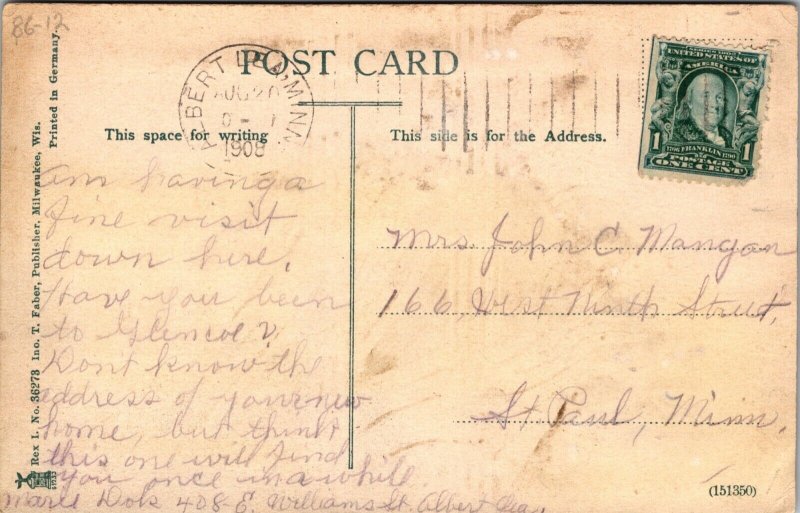 86-12
POST CARD
ALBERT LEA, MINN.
AUG 20
1908
UNITED STATES OF
AMERICA
1 1
1706 FRANKLIN 1790
POSTAGE
ONE CENT
This space for writing
This side is for the Address.
am having a
fine visit
down here.
Have you been
to Glencoe?
Dont know the
address of your new
home, but think
this one will find
you once in a while.
Marie 408 E. Williams St. Albert Lea,
Mrs. John C. Mangan
166, West Ninth Street,
St Paul, Minn.
Rex L. No. 36273 Ino. T. Faber, Publisher, Milwaukee, Wis.
Printed in Germany.
(151350)